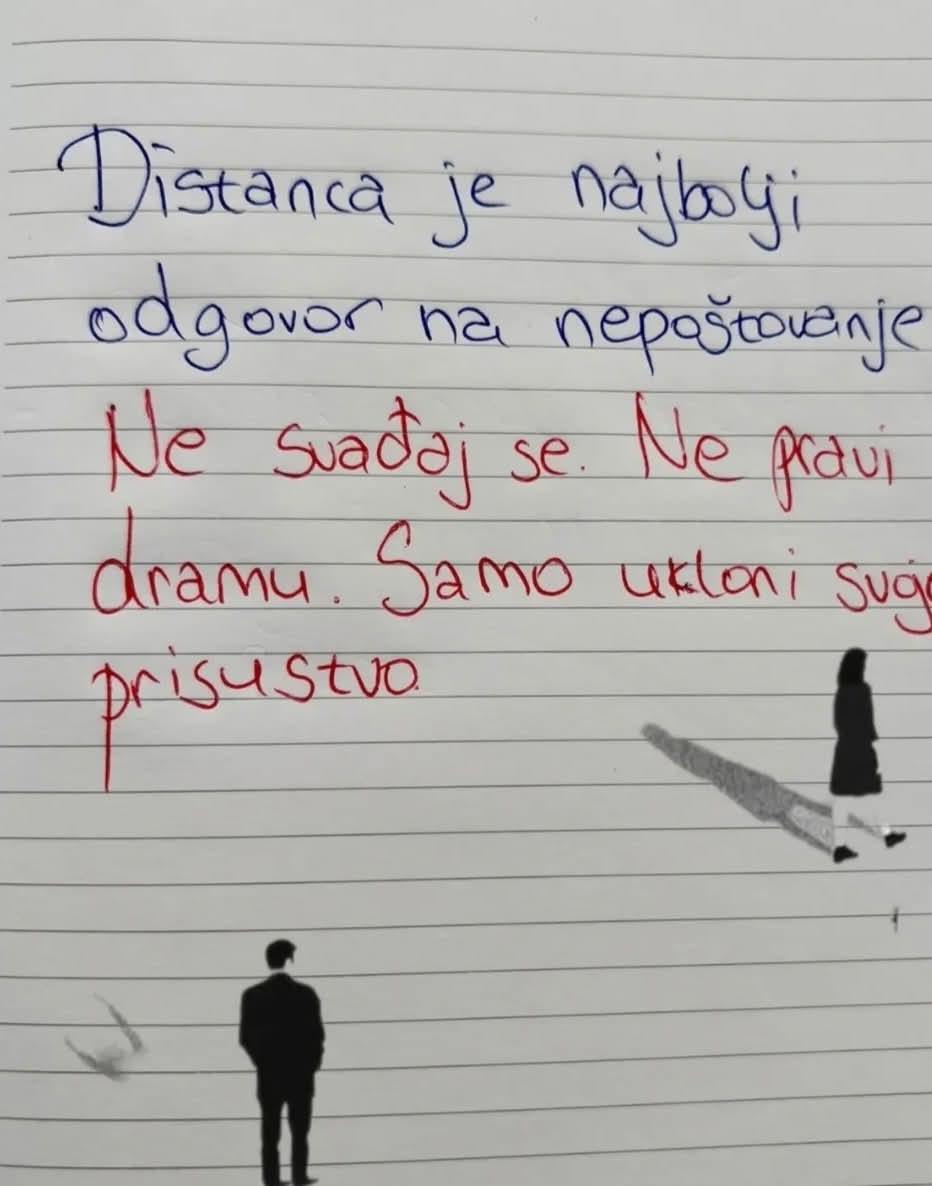 Distanca je najbolji
odgovor na nepoštovanje
Ne svađaj se. Ne pravi
dramu. Samo ukloni
prisustvo.